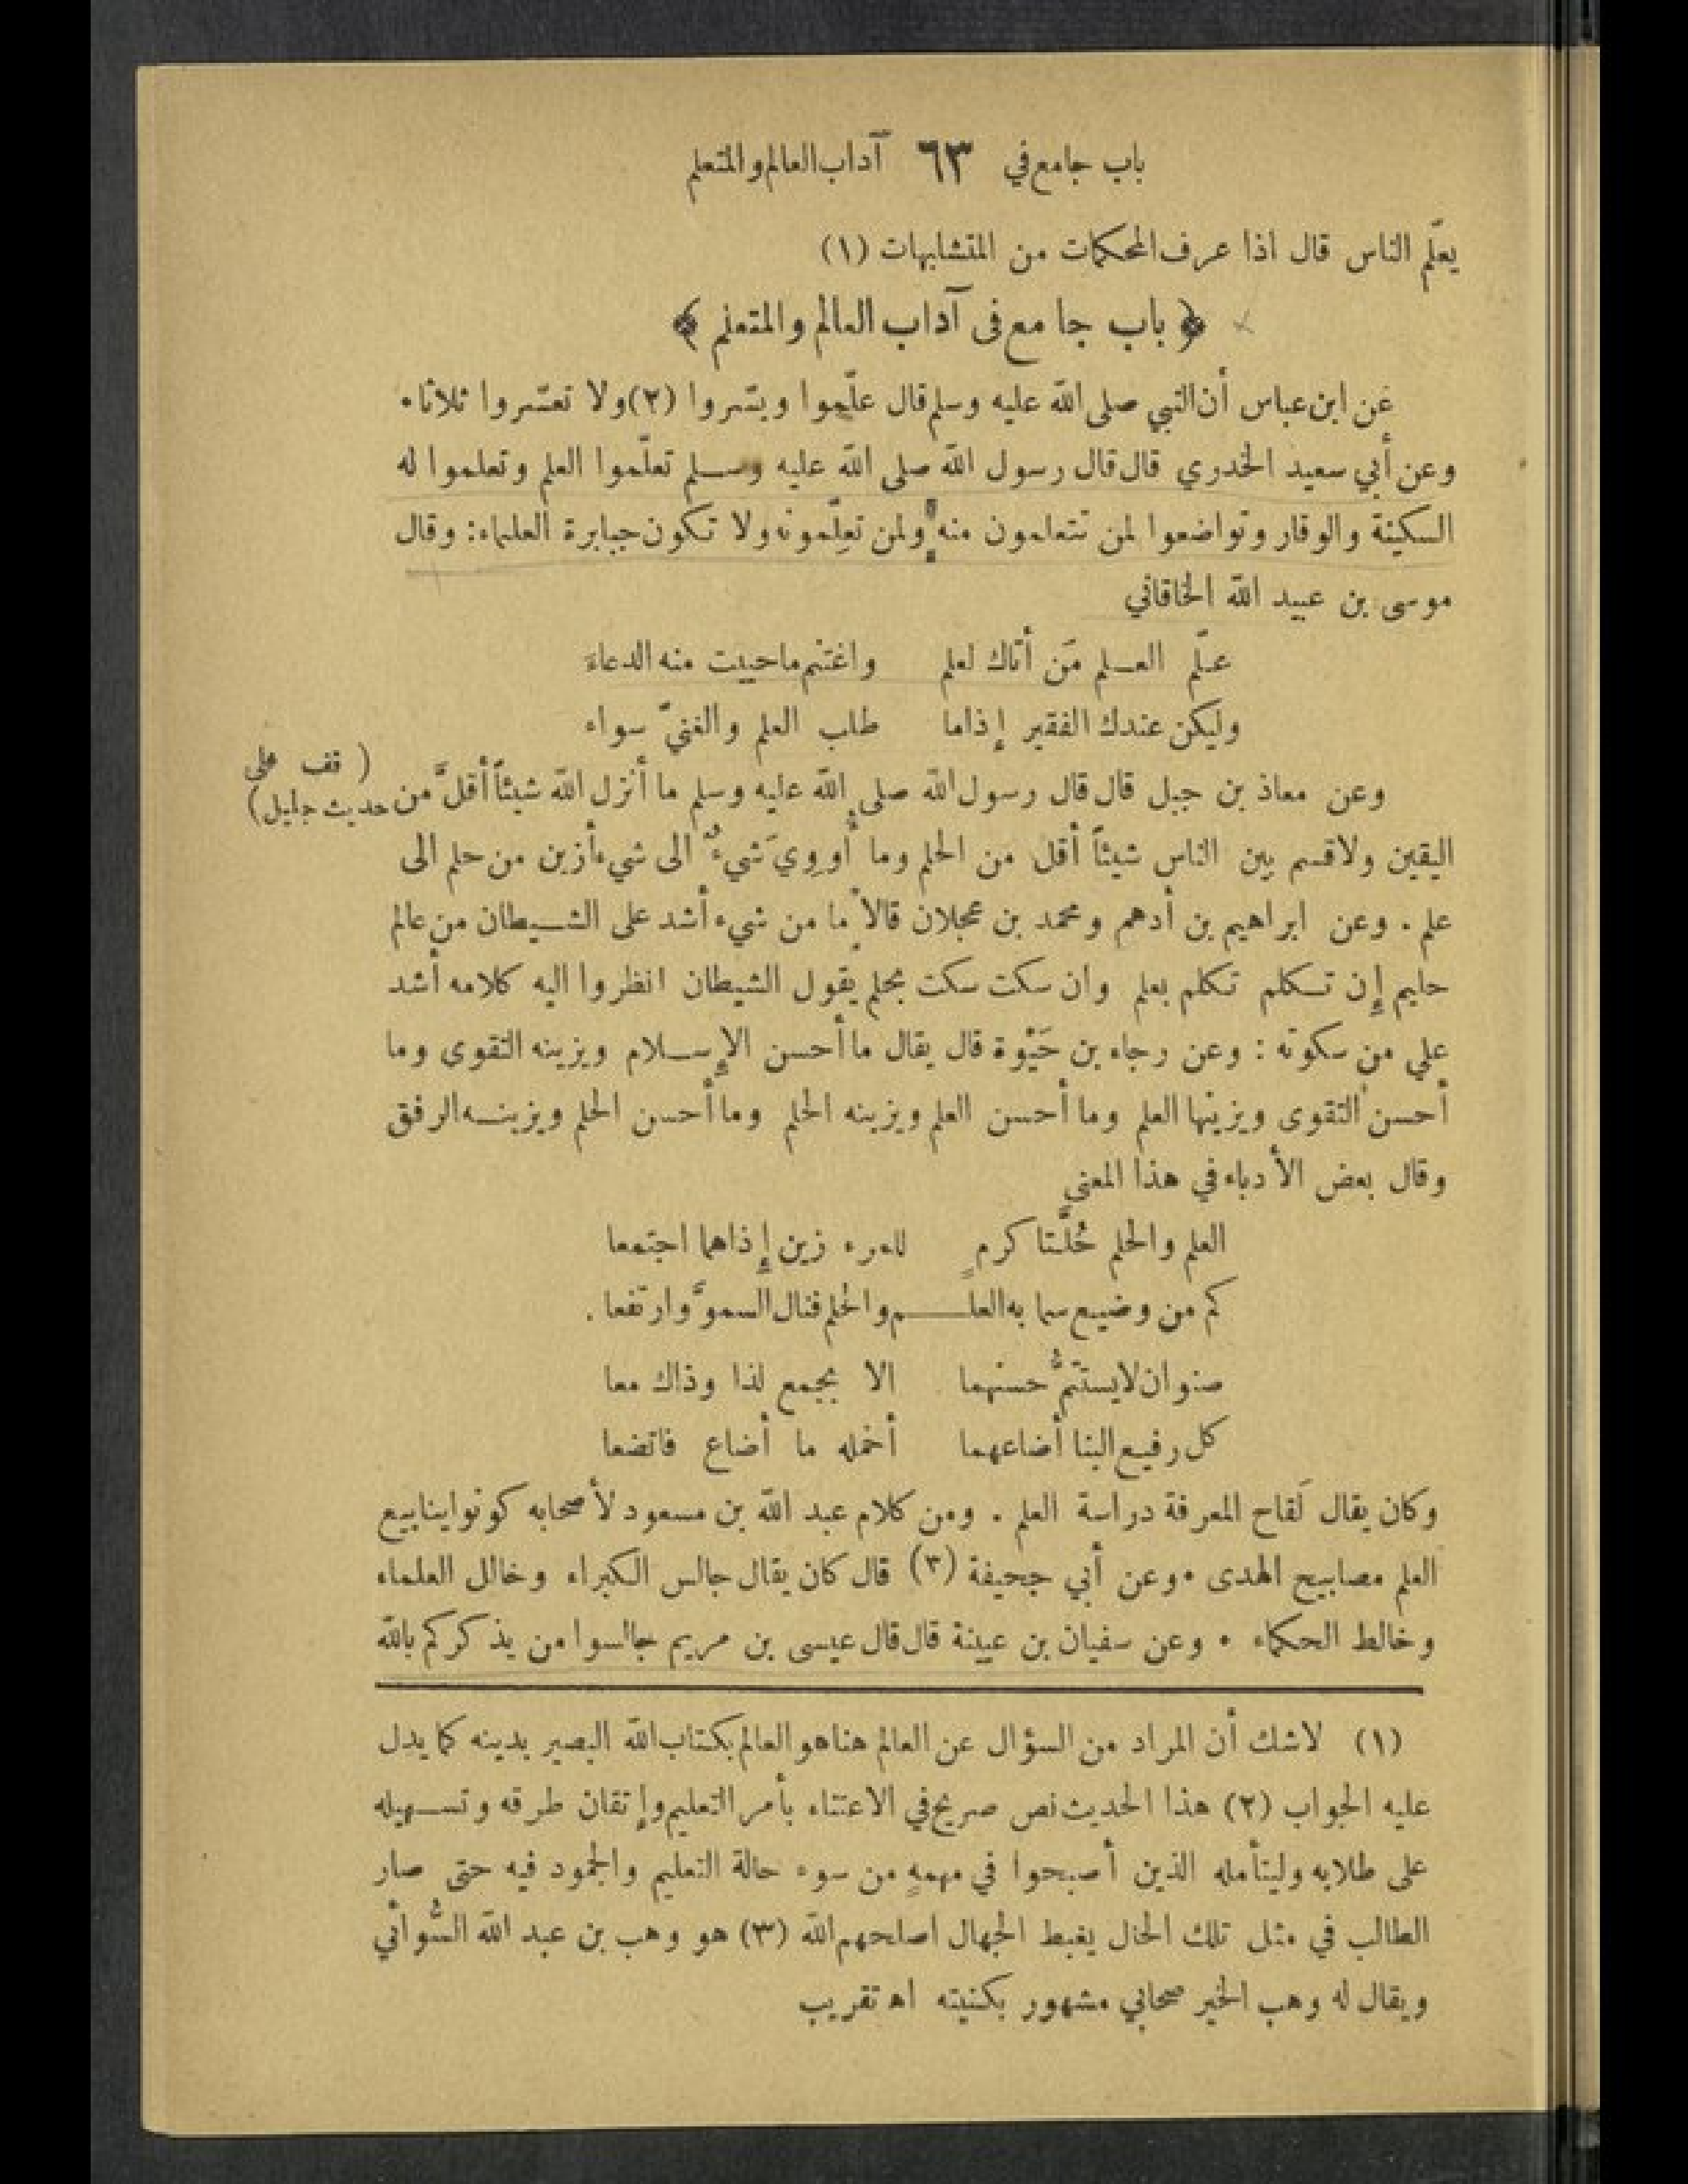 باب جامع في ٦٣ آداب العالم والمتعلم
يعلّم الناس قال اذا عرف المحكمات من المتشابهات (١)
﴿ باب جامع فى آداب العالم والمتعلم ﴾
عن ابن عباس أن النبي صلى الله عليه وسلم قال علّموا ويسّروا (٢) ولا تعسّروا ثلاثا.
وعن أبي سعيد الخدري قال قال رسول الله صلى الله عليه وسلم تعلّموا العلم وتعلموا له
السكينة والوقار وتواضعوا لمن تتعلمون منه ولمن تعلّمونه ولا تكون جبابرة العلماء: وقال
موسى بن عبيد الله الخاقاني
علّم العلم مَن أتاك لعلم واغتنم ماحييت منه الدعاءَ
وليكن عندك الفقير إذاما طلب العلم والغنيّ سواء
وعن معاذ بن جبل قال قال رسول الله صلى الله عليه وسلم ما أنزل الله شيئاً أقلَّ من
( قف على
حديث جليل)
اليقين ولا قسم بين الناس شيئاً أقل من الحلم وما أوويَ شيءٌ الى شيء أزين من حلم الى
علم . وعن ابراهيم بن أدهم ومحمد بن عجلان قالا ما من شيء أشد على الشيطان من عالم
حليم إن تكلم تكلم بعلم وان سكت سكت بحلم يقول الشيطان انظروا اليه كلامه أشد
علي من سكوته : وعن رجاء بن حَيْوة قال يقال ما أحسن الإسلام ويزينه التقوى وما
أحسن التقوى ويزينها العلم وما أحسن العلم ويزينه الحلم وما أحسن الحلم ويزينه الرفق
وقال بعض الأدباء في هذا المعنى
العلم والحلم خُلَّتا كرمٍ للمرء زين إذاهما اجتمعا
كم من وضيع سما به العلـــم والحلم فنال السموَّ وارتفعا .
صنوان لا يستتمُّ حسنهما الا بجمع لذا وذاك معا
كل رفيع البنا أضاعهما أخمله ما أضاع فاتضعا
وكان يقال لَقاح المعرفة دراسة العلم . ومن كلام عبد الله بن مسعود لأصحابه كونوا ينابيع
العلم مصابيح الهدى . وعن أبي جحيفة (٣) قال كان يقال جالس الكبراء وخالل العلماء
وخالط الحكماء . وعن سفيان بن عيينة قال قال عيسى بن مريم جالسوا من يذكركم بالله
(١) لاشك أن المراد من السؤال عن العالم هنا هو العالم بكتاب الله البصير بدينه كما يدل
عليه الجواب (٢) هذا الحديث نص صريح في الاعتناء بأمر التعليم وإتقان طرقه وتسهيله
على طلابه وليتأمله الذين أصبحوا في مهمهٍ من سوء حالة التعليم والجمود فيه حتى صار
الطالب في مثل تلك الحال يغبط الجهال اصلحهم الله (٣) هو وهب بن عبد الله السُّوائي
ويقال له وهب الخير صحابي مشهور بكنيته اه تقريب